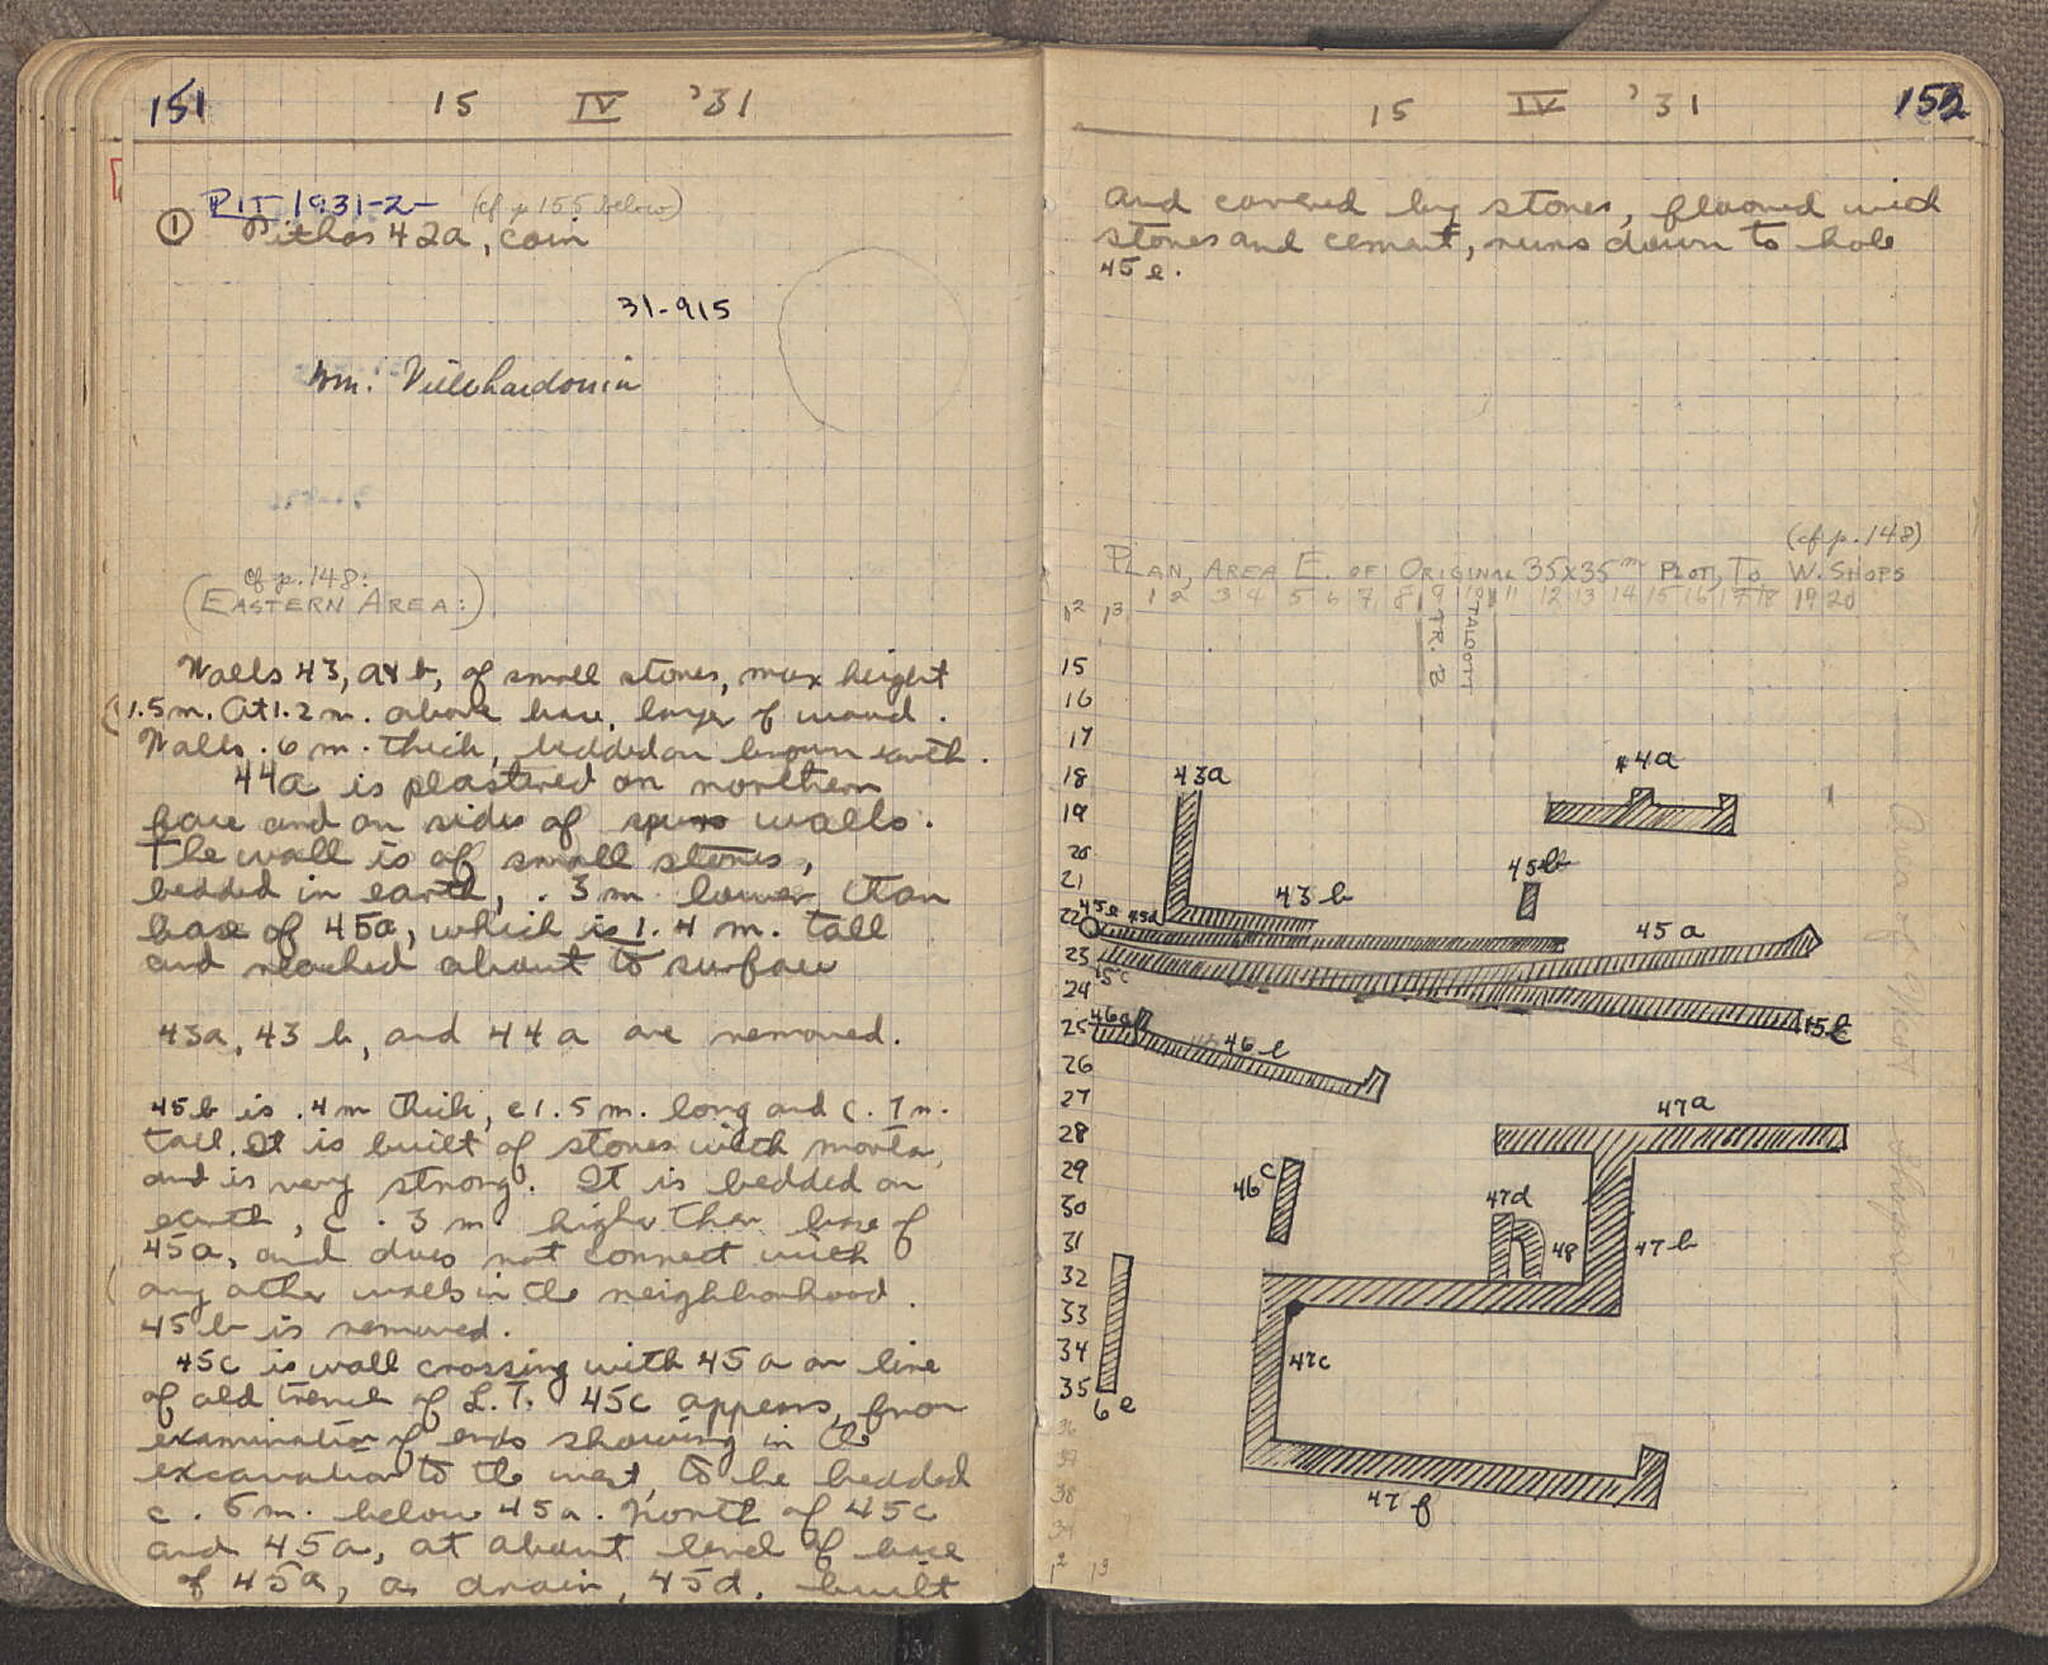 151
15 IV '31
PIT 1931-2- (cf p 155 below)
① Pithos 42a, coin
31-915
Wm. Villehardouin
cf p. 148:
(EASTERN AREA:)
Walls 43, a & b, of small stones, max height
1.5 m. At 1.2 m. above base, layer of wood.
Walls .6 m. thick, bedded on brown earth.
44a is plastered on northern
face and on sides of spur walls.
The wall is of small stones,
bedded in earth, .3 m lower than
base of 45a, which is 1.4 m. tall
and reached about to surface
43a, 43 b, and 44a are removed.
45 b is .4 m thick, c 1.5 m. long and c. 7 m.
tall. It is built of stones with mortar,
and is very strong. It is bedded on
earth, c .3 m. higher than base of
45a, and does not connect with
any other walls in the neighborhood.
45 b is removed.
45c is wall crossing with 45a on line
of old trench of L.T. 45c appears, from
examination of ends showing in the
excavation to the west, to be bedded
c .6 m. below 45a. North of 45c
and 45a, at about level of base
of 45a, a drain, 45d, built
15 IV '31
152
and covered by stones, floored with
stones and cement, runs down to hole
45 e.
(cf p. 148)
PLAN, AREA E. OF ORIGINAL 35x35m PLOT, TO W. SHOPS
1 2 3 4 5 6 7 8 9 10 11 12 13 14 15 16 17 18 19 20
12 13
TR. B
TALCOTT
15
16
17
18
19
20
21
22
23
24
25
26
27
28
29
30
31
32
33
34
35
36
37
38
39
12 13
43a
44a
45b
43 b
45e 45d
45 a
45c
45c
46a
46 b
47a
46c
47d
48
47 b
47c
6 e
47 f
Area of West Shops